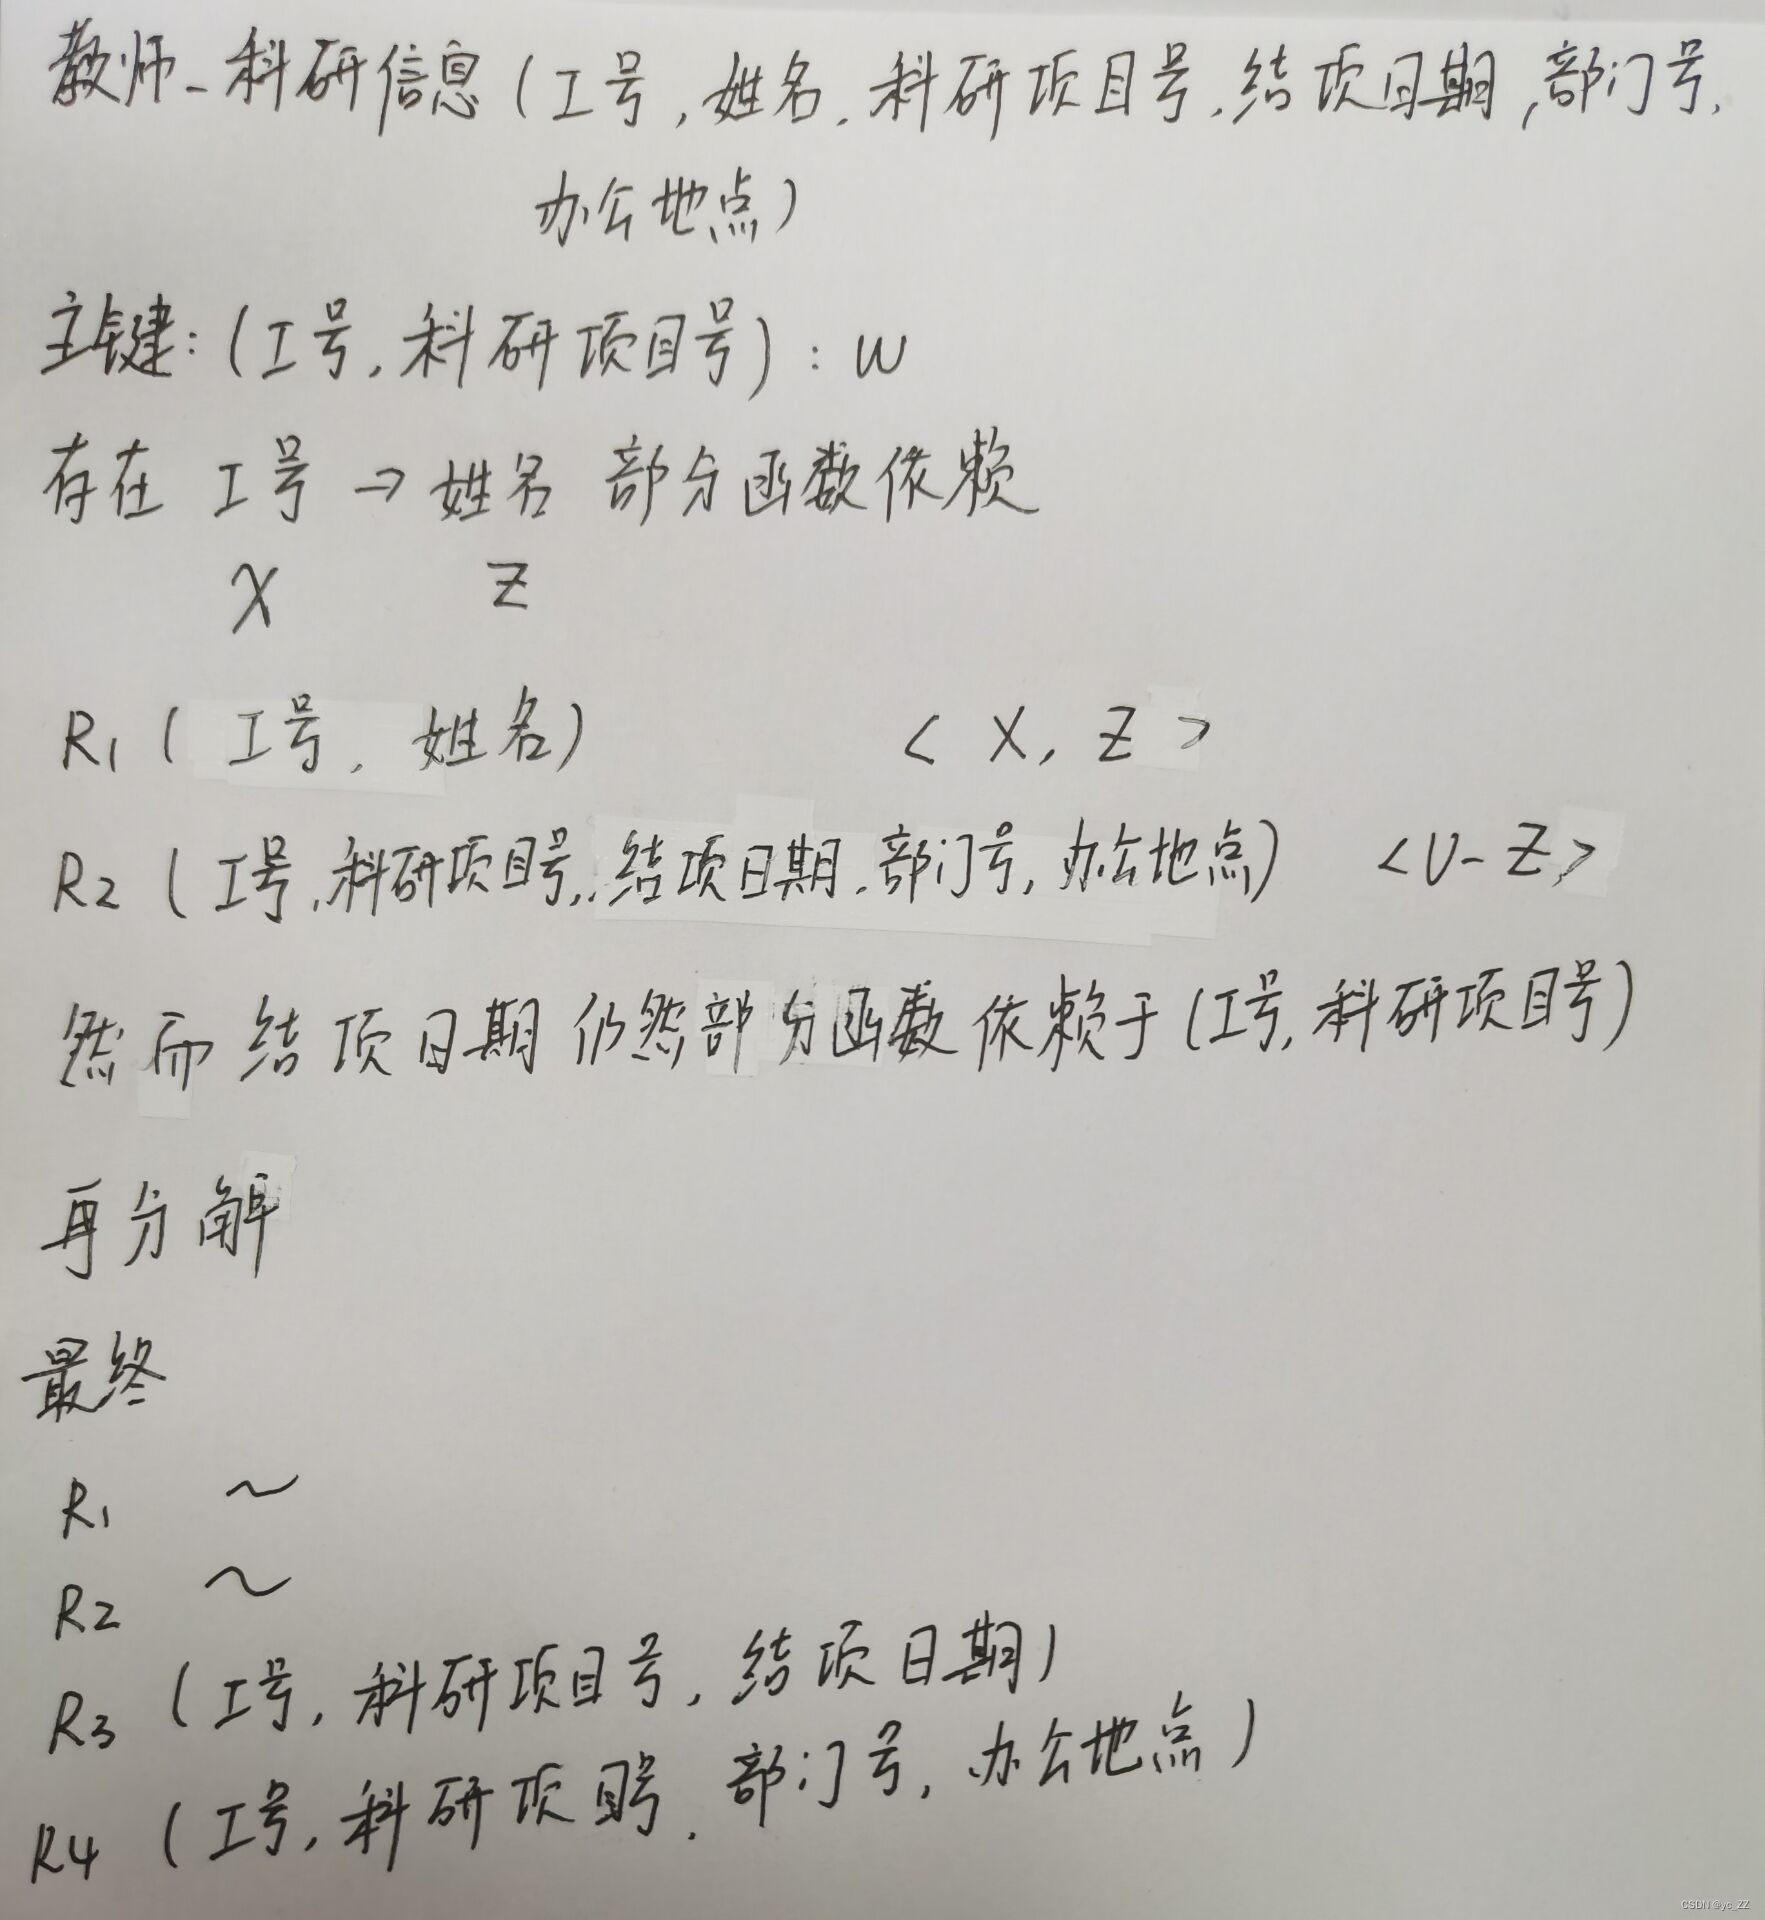 教师-科研信息(工号,姓名,科研项目号,结项日期,部门号,
办公地点)
主键:(工号,科研项目号):W
存在 工号→姓名 部分函数依赖
X Z
R1(工号,姓名) <X,Z>
R2(工号,科研项目号,.结项日期,部门号,办公地点) <U-Z>
然而结项日期仍然部分函数依赖于(工号,科研项目号)
再分解
最终
R1 ~
R2 ~
R3(工号,科研项目号,结项日期)
R4(工号,科研项目号,部门号,办公地点)
CSDN @yc_ZZ